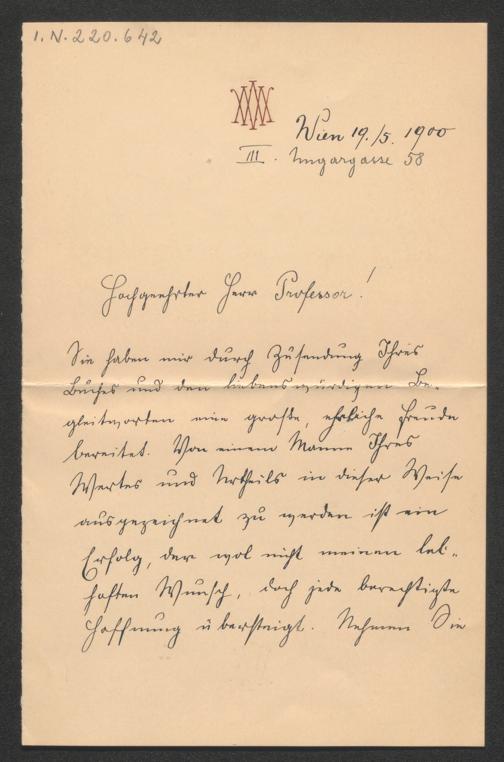 I.N.220.642
Wien 19./5. 1900
III. Ungargasse 58
Hochgeehrter Herr Professor!
Sie haben mir durch Zusendung Ihres
Buches und den liebenswürdigen Be-
gleitworten eine große, ehrliche Freude
bereitet. Von einem Manne Ihres
Wertes und Urtheils in dieser Weise
ausgezeichnet zu werden ist ein
Erfolg, der wol nicht meinen leb-
haften Wunsch, doch jede berechtigte
Hoffnung übersteigt. Nehmen Sie